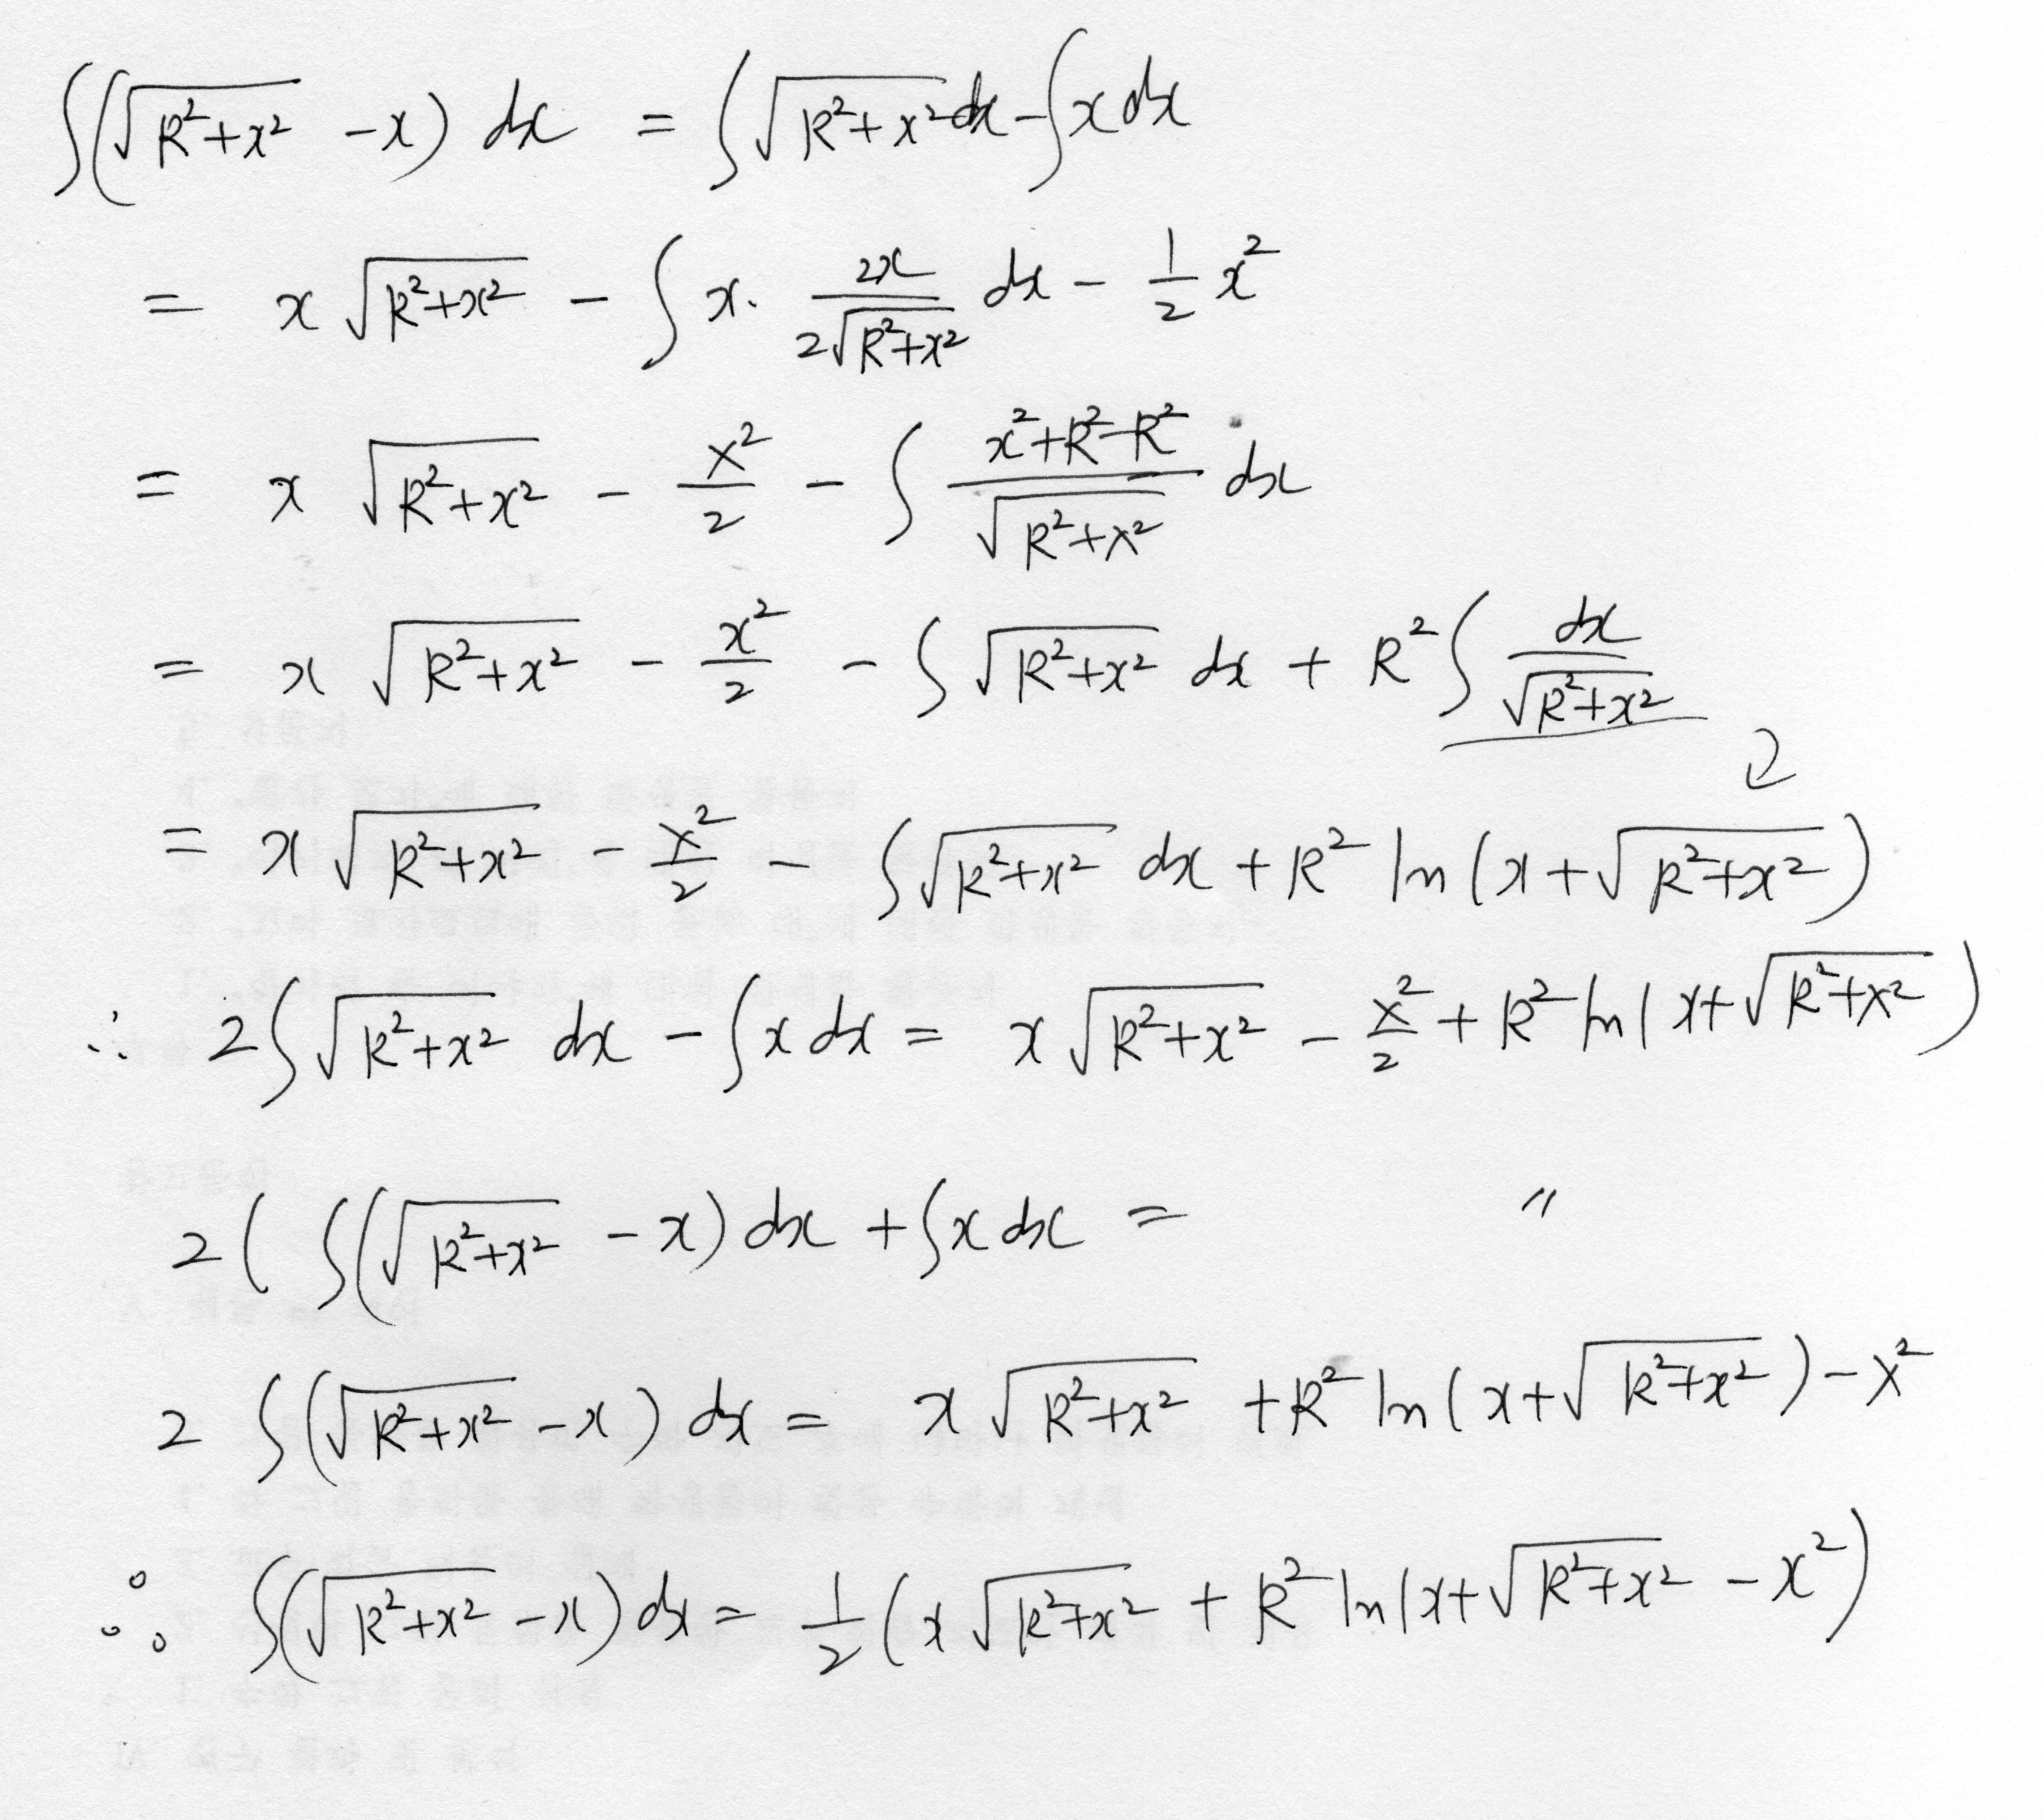 ∫(√(R²+x²) -x) dx = ∫√(R²+x²) dx - ∫x dx
= x √(R²+x²) - ∫ x· 2x/(2√(R²+x²)) dx - 1/2 x²
= x √(R²+x²) - x²/2 - ∫ (x²+R²-R²)/√(R²+x²) dx
= x √(R²+x²) - x²/2 - ∫ √(R²+x²) dx + R² ∫ dx/√(R²+x²)
= x √(R²+x²) - x²/2 - ∫√(R²+x²) dx + R² ln(x+√(R²+x²))
∴ 2∫√(R²+x²) dx - ∫x dx = x √(R²+x²) - x²/2 + R² ln(x+√(R²+x²))
2( ∫(√(R²+x²) -x) dx + ∫x dx = 〃
2 ∫(√(R²+x²) -x) dx = x √(R²+x²) + R² ln(x+√(R²+x²)) - x²
∴ ∫(√(R²+x²) -x) dx = 1/2 (x √(R²+x²) + R² ln(x+√(R²+x²) - x²)